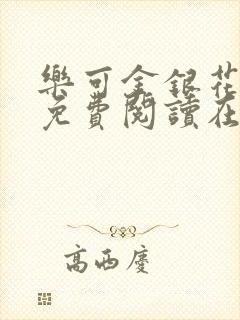 樂可金銀花
免費閱讀在
高西慶